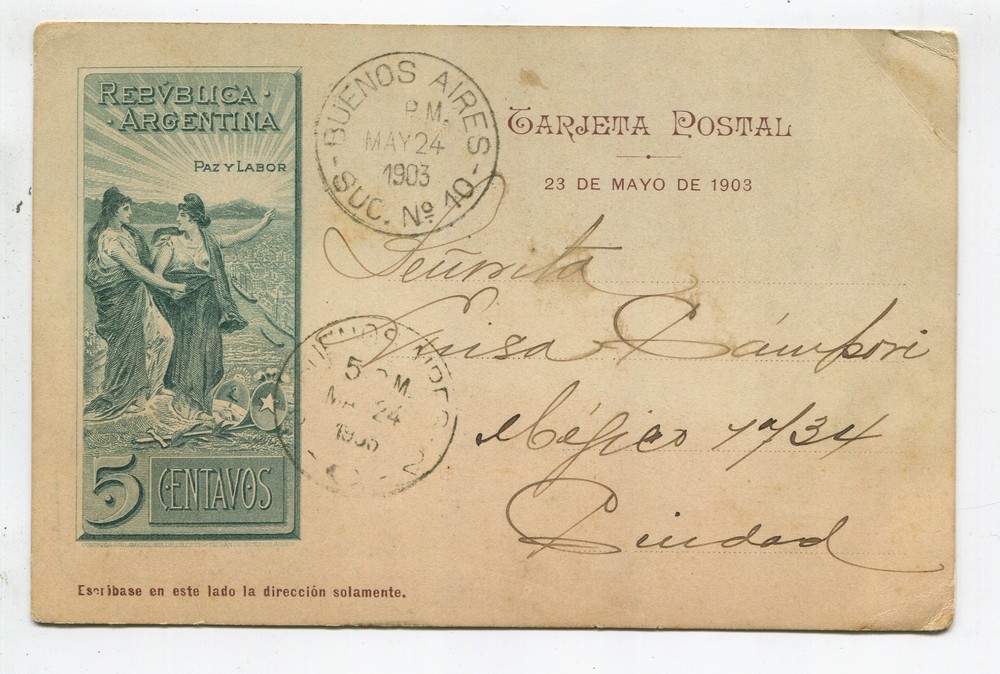 REPVBLICA ·
· ARGENTINA
PAZ Y LABOR
5 CENTAVOS
BUENOS AIRES
P.M.
MAY 24
1903
SUC. Nº 10
TARJETA POSTAL
23 DE MAYO DE 1903
Señorita
Luisa Cámpori
Méjico 1734
Ciudad
BUENOS AIRES
5 P.M.
MAY 24
1903
Escríbase en este lado la dirección solamente.